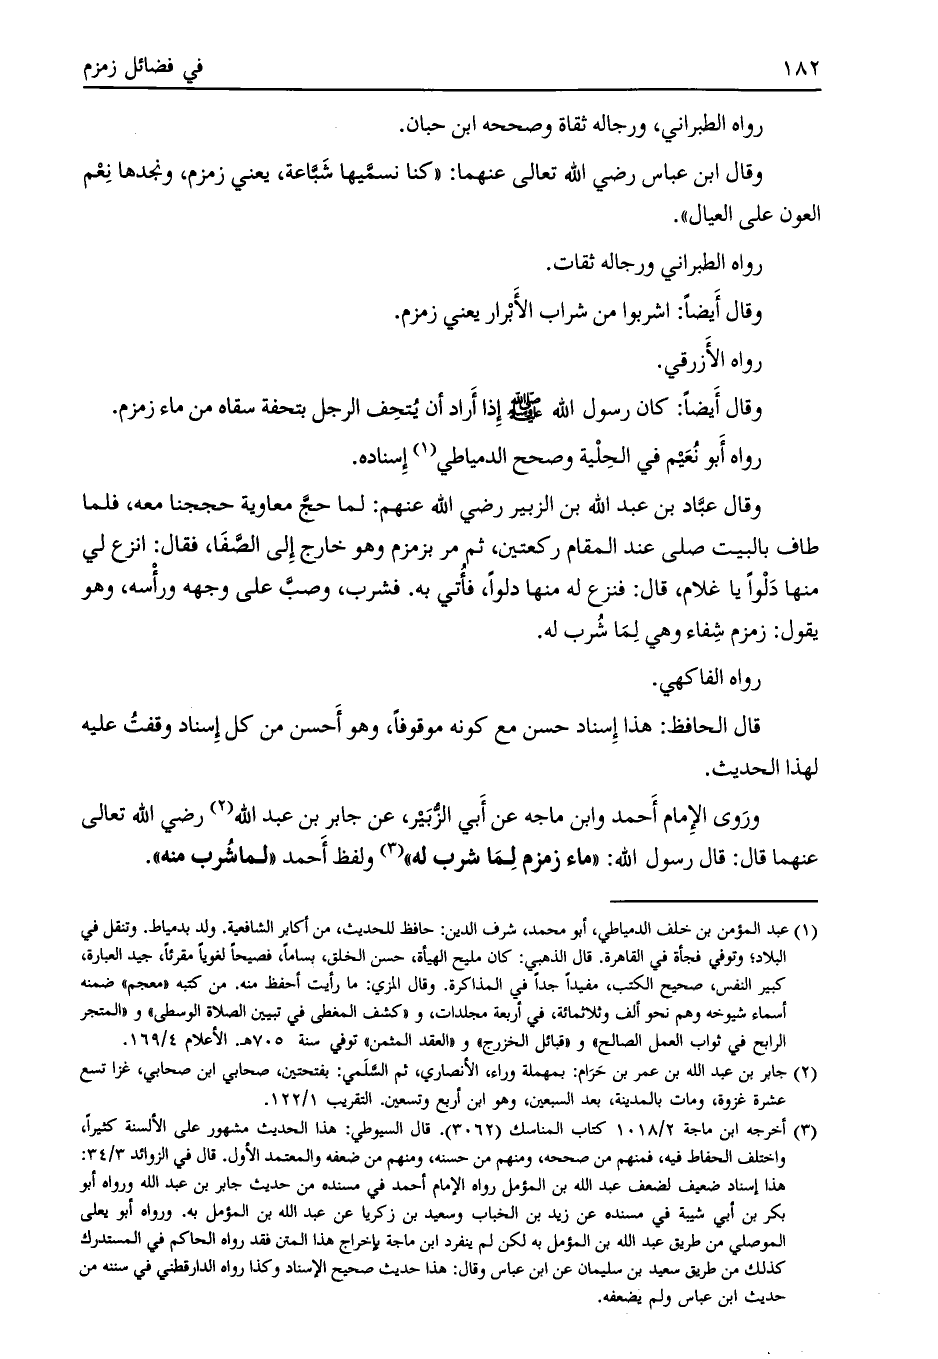 ١٨٢ في فضائل زمزم
رواه الطبراني، ورجاله ثقاة وصححه ابن حبان.
وقال ابن عباس رضي الله تعالى عنهما: «كنا نسمَّيها شَبَّاعة، يعني زمزم، ونجدها نِعْم
العون على العيال».
رواه الطبراني ورجاله ثقات.
وقال أَيضاً: اشربوا من شراب الأَبْرار يعني زمزم.
رواه الأَزرقي.
وقال أَيضاً: كان رسول الله ﷺ إِذا أَراد أن يُتحِف الرجل بتحفة سقاه من ماء زمزم.
رواه أَبو نُعَيْم في الحِلْية وصحح الدمياطي(١) إِسناده.
وقال عبَّاد بن عبد الله بن الزبير رضي الله عنهم: لما حجَّ معاوية حججنا معه، فلما
طاف بالبيت صلى عند المقام ركعتين، ثم مر بزمزم وهو خارج إِلى الصَّفَا، فقال: انزع لي
منها دَلْواً يا غلام، قال: فنزع له منها دلواً، فأُتي به. فشرب، وصبَّ على وجهه ورأْسه، وهو
يقول: زمزم شِفاء وهي لِمَا شُرب له.
رواه الفاكهي.
قال الحافظ: هذا إِسناد حسن مع كونه موقوفاً، وهو أَحسن من كل إِسناد وقفتُ عليه
لهذا الحديث.
ورَوى الإِمام أَحمد وابن ماجه عن أَبي الزُّبَيْر، عن جابر بن عبد الله(٢) رضي الله تعالى
عنهما قال: قال رسول الله: «ماء زمزم لِمَا شرب له»(٣) ولفظ أَحمد «لماشُرب منه».
(١) عبد المؤمن بن خلف الدمياطي، أبو محمد، شرف الدين: حافظ للحديث، من أكابر الشافعية. ولد بدمياط. وتنقل في
البلاد؛ وتوفي فجأة في القاهرة. قال الذهبي: كان مليح الهيأة، حسن الخلق، بساماً، فصيحاً لغوياً مقرئاً، جيد العبارة،
كبير النفس، صحيح الكتب، مفيداً جداً في المذاكرة. وقال المزي: ما رأيت أحفظ منه. من كتبه «معجم» ضمنه
أسماء شيوخه وهم نحو ألف وثلاثمائة، في أربعة مجلدات، و «كشف المغطى في تبيين الصلاة الوسطى» و «المتجر
الرابح في ثواب العمل الصالح» و «قبائل الخزرج» و «العقد المثمن» توفي سنة ٧٠٥هـ. الأعلام ١٦٩/٤.
(٢) جابر بن عبد الله بن عمر بن حَرَام: بمهملة وراء، الأنصاري، ثم السَّلَمي: بفتحتين، صحابي ابن صحابي، غزا تسع
عشرة غزوة، ومات بالمدينة، بعد السبعين، وهو ابن أربع وتسعين. التقريب ١٢٢/١.
(٣) أخرجه ابن ماجة ١٠١٨/٢ كتاب المناسك (٣٠٦٢). قال السيوطي: هذا الحديث مشهور على الألسنة كثيراً،
واختلف الحفاظ فيه، فمنهم من صححه، ومنهم من حسنه، ومنهم من ضعفه والمعتمد الأول. قال في الزوائد ٣٤/٣:
هذا إسناد ضعيف لضعف عبد الله بن المؤمل رواه الإمام أحمد في مسنده من حديث جابر بن عبد الله ورواه أبو
بكر بن أبي شيبة في مسنده عن زيد بن الخباب وسعيد بن زكريا عن عبد الله بن المؤمل به. ورواه أبو يعلى
الموصلي من طريق عبد الله بن المؤمل به لكن لم ينفرد ابن ماجة بإخراج هذا المتن فقد رواه الحاكم في المستدرك
كذلك من طريق سعيد بن سليمان عن ابن عباس وقال: هذا حديث صحيح الإسناد وكذا رواه الدارقطني في سننه من
حديث ابن عباس ولم يضعفه.